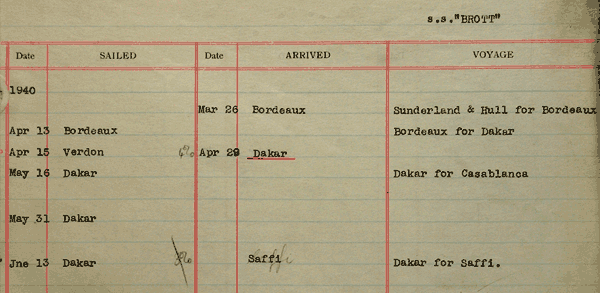 s.s."BROTT"
Date SAILED Date ARRIVED VOYAGE
1940
Mar 26 Bordeaux Sunderland & Hull for Bordeaux
Apr 13 Bordeaux Bordeaux for Dakar
Apr 15 Verdon Apr 29 Dakar
May 16 Dakar Dakar for Casablanca
May 31 Dakar
Jne 13 Dakar Saffi Dakar for Saffi.